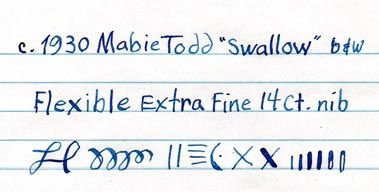 c. 1930 Mabie Todd "Swallow" b&w
Flexible Extra Fine 14 Ct. nib